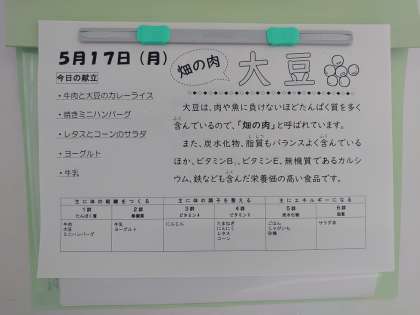 5月17日（月）
畑の肉
大豆
今日の献立
・牛肉と大豆のカレーライス
・焼きミニハンバーグ
・レタスとコーンのサラダ
・ヨーグルト
・牛乳
大豆は、肉や魚に負けないほどたんぱく質を多く
含んでいるので、「畑の肉」と呼ばれています。
また、炭水化物、脂質もバランスよく含んでいる
ほか、ビタミンB₁、ビタミンE、無機質であるカルシ
ウム、鉄なども含んだ栄養価の高い食品です。
主に体の組織をつくる 主に体の調子を整える 主にエネルギーになる
1群 2群 3群 4群 5群 6群
たんぱく質 無機質 ビタミンA ビタミンC 炭水化物 脂質
牛肉 牛乳 にんじん たまねぎ ごはん サラダ油
大豆 ヨーグルト にんにく じゃがいも
ミニハンバーグ レタス 砂糖
コーン